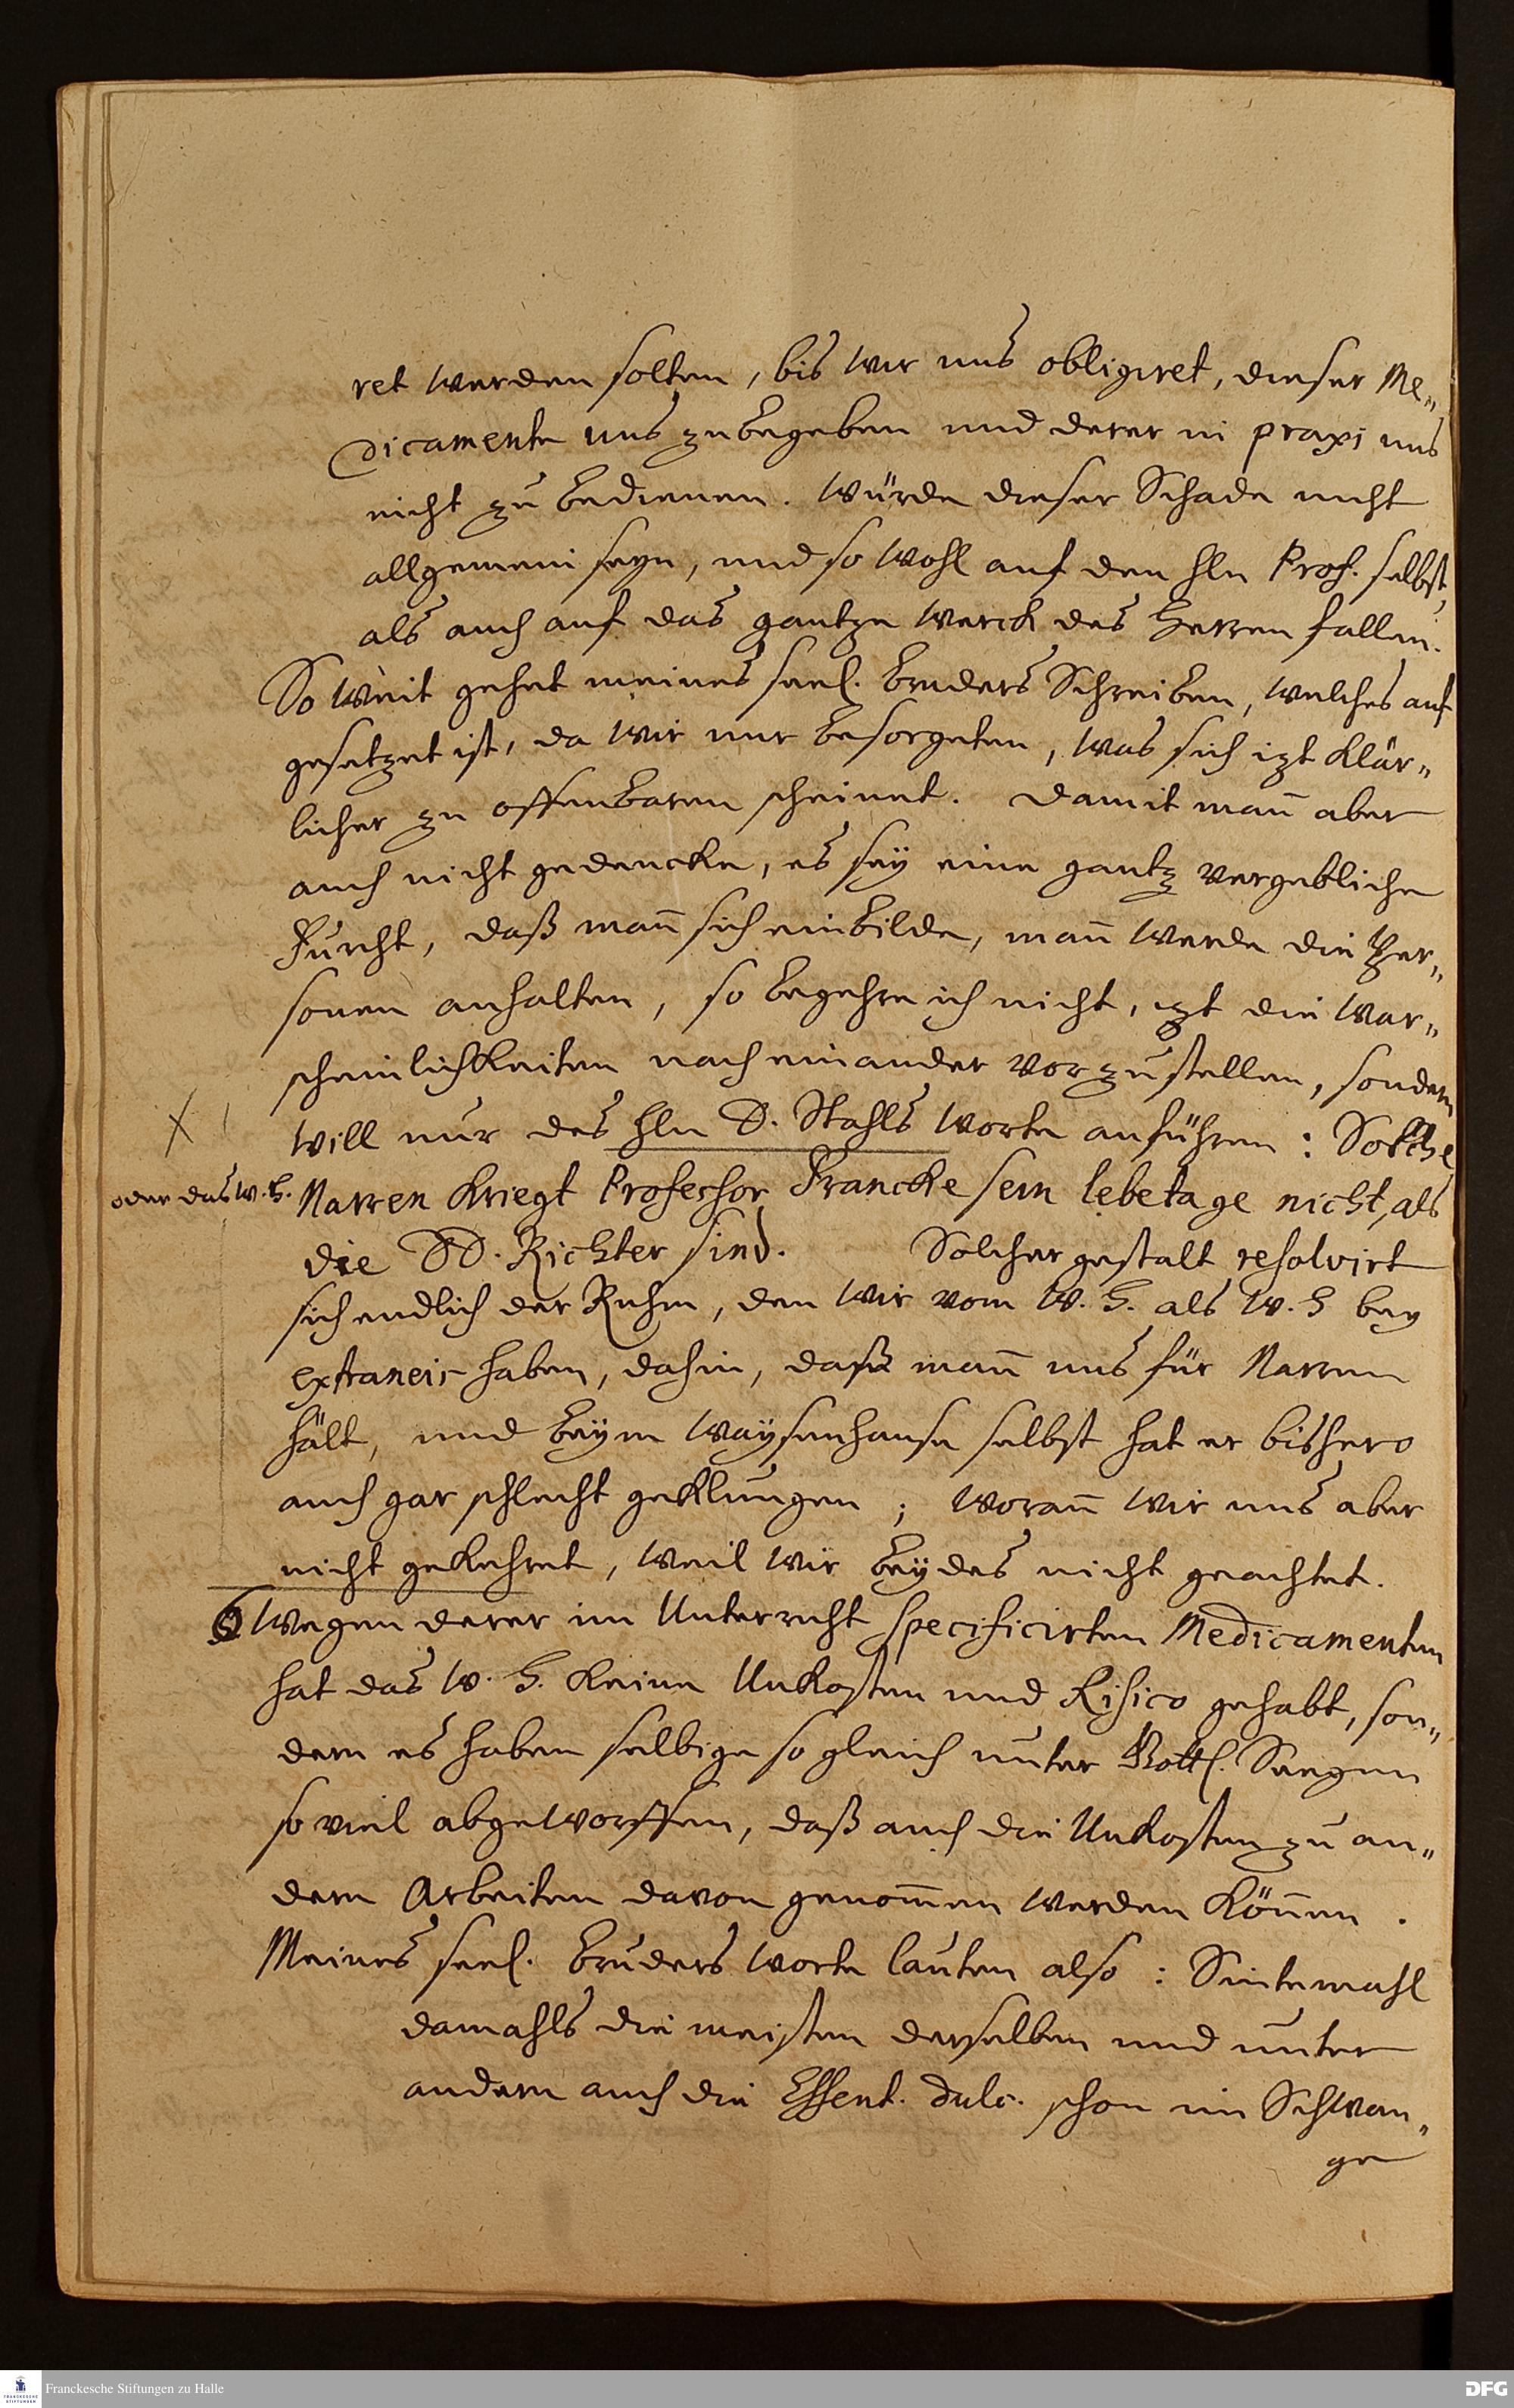 ret werden solten, bis wir uns obligiret, dieser Me„
dicamente uns zubegeben und derer in praxi uns
nicht zu bedienen. Würde dieser Schade nicht
allgemein seyn, und so wohl auf den Hln Prof. selbst,
als auch auf das gantze Werck des Herren fallen.
So weit gehet meines seel. Bruders Schreiben, welches auf
gesetzet ist, da wir nur besorgeten, was sich izt klär„
licher zu offenbaren scheinet. Damit man̄ aber
auch nicht gedencke, es sey eine gantz vergebliche
Furcht, daß man̄ sich einbilde, man̄ werde die Per„
sonen anhalten, so begehre ich nicht, izt die War„
scheinlichkeiten nach einander vorzustellen, sondern
will nur des Hln D. Stahls Worte anführen: Solche
oder das W. H.
Narren kriegt Professor Francke sein lebetage nicht, als
die DD. Richter sind. Solcher gestalt resolvirt
sich endlich der Ruhm, den wir vom W. H. als W. H bey
extraneis haben, dahin, daß man̄ uns für Narren
hält, und beym Waysenhause selbst hat er bishero
auch gar schlecht geklungen; woran̄ wir uns aber
nicht gekehret, weil wir beydes nicht geachtet.
6 Wegen derer im Unterricht specificirten Medicamenten
hat das W. H. keine Unkosten und Risico gehabt, son„
dern es haben selbige so gleich unter Göttl. Seegen
so viel abgeworffen, daß auch die Unkosten zu an„
dern Arbeiten davon genom̄en werden kön̄en.
Meines seel. Bruders Worte lauten also: Sintemahl
damahls die meisten derselben und unter
andern auch die Essent. dulc. schon im Schwan„
ge
Franckesche Stiftungen zu Halle
DFG